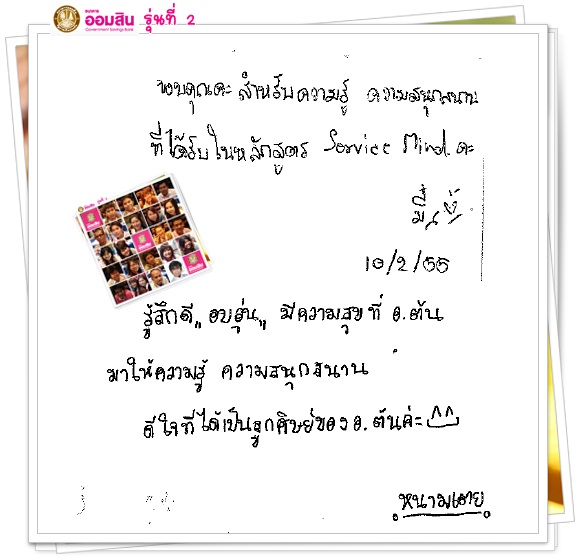 ธนาคาร
ออมสิน รุ่นที่ 2
Government Savings Bank
ขอบคุณคะสำหรับความรู้ ความสนุกสนาน
ที่ได้รับในหลักสูตร Service Mind คะ
10/2/55
รู้สึกดี "อบอุ่น" มีความสุขที่ อ.ต้น
มาให้ความรู้ ความสนุกสนาน
ดีใจที่ได้เป็นลูกศิษย์ของ อ.ต้นค่ะ
หนามเตย